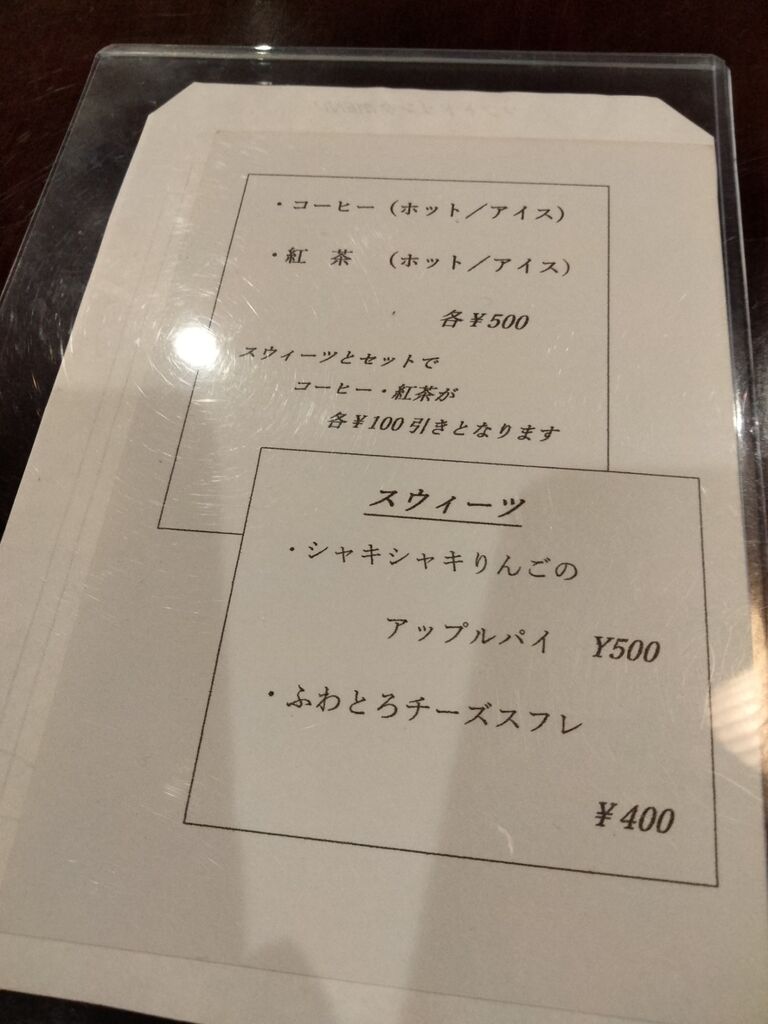 ・コーヒー（ホット／アイス）
・紅　茶　（ホット／アイス）
各￥500
スウィーツとセットで
コーヒー・紅茶が
各￥100引きとなります
スウィーツ
・シャキシャキりんごの
アップルパイ　Y500
・ふわとろチーズスフレ
￥400